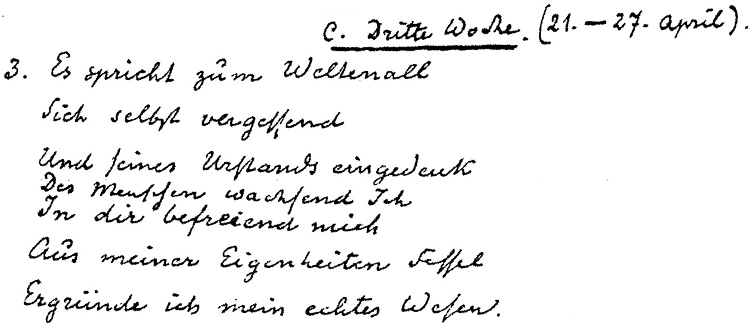 C. Dritte Woche. (21. – 27. April).
3. Es spricht zum Weltenall
Sich selbst vergessend
Und seines Urstands eingedenk
Des Menschen wachsend Ich
In dir befreiend mich
Aus meiner Eigenheiten Fessel
Ergründe ich mein echtes Wesen.